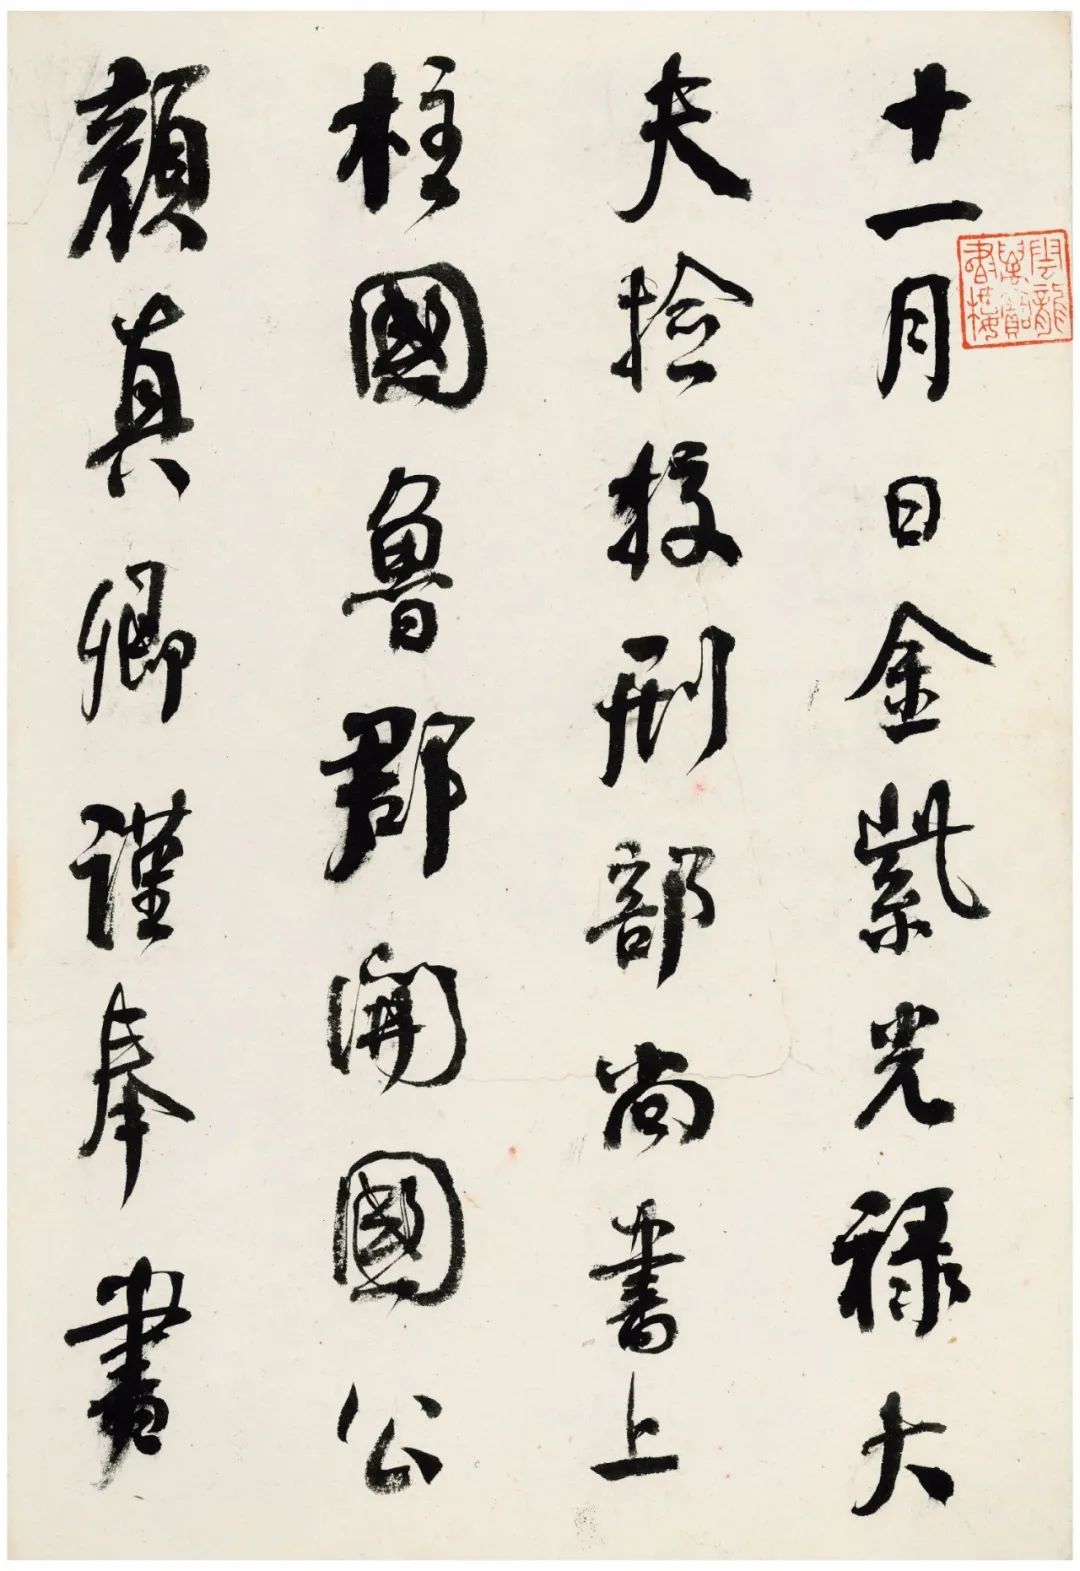 十一月日金紫光禄大
夫捡挍刑部尚書上
柱國魯郡開國公
顏真卿謹奉書
雲龍萬寶書樓